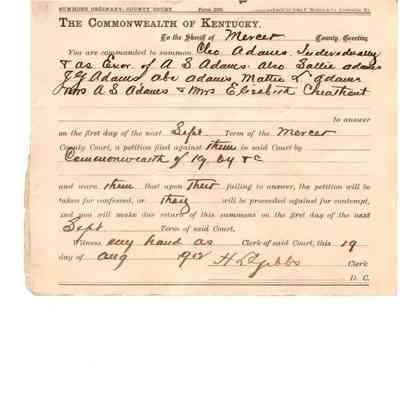 SUMMONS ORDINARY, COUNTY COURT.
THE COMMONWEALTH OF KENTUCKY.
To the Sheriff of Mercer County, Greeting
You are commanded to summon Cleo Adams. Individually
& as Exor. of A S Adams. Also Sallie Adams
J G Adams, Abe Adams, Mattie L Adams
Mrs A S Adams & Mrs Elizabeth Cheatham
to answer
on the first day of the next Sept. Term of the Mercer
County Court, a petition filed against them in said Court by
Commonwealth of Ky by & C
and warn them that upon their failing to answer, the petition will be
taken for confessed, or they will be proceeded against for contempt,
and you will make due return of this summons on the first day of the next
Sept. Term of said Court.
Witness my hand as Clerk of said Court, this 19
day of Aug 1912 Clerk
D. C.